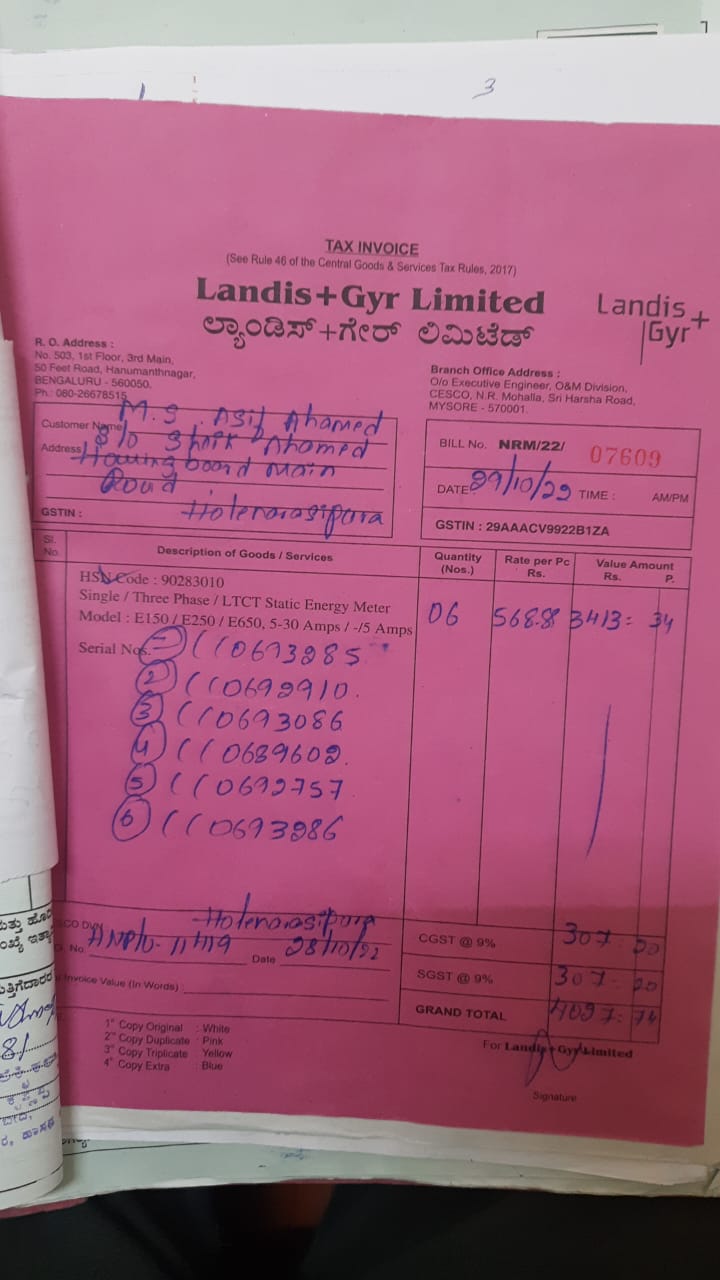 3
TAX INVOICE
(See Rule 46 of the Central Goods & Services Tax Rules, 2017)
Landis+Gyr Limited
ಲ್ಯಾಂಡಿಸ್+ಗೇರ್ ಲಿಮಿಟೆಡ್
Landis+
Gyr
R. O. Address :
No. 503, 1st Floor, 3rd Main,
50 Feet Road, Hanumanthnagar,
BENGALURU - 560050.
Ph.: 080-26678515
Branch Office Address :
O/o Executive Engineer, O&M Division,
CESCO, N.R. Mohalla, Sri Harsha Road,
MYSORE - 570001.
Customer Name M.S. Asif Ahamed
S/o Shaik Ahamed
Address Housing board Main
Road
GSTIN : Holenarasipura
BILL No. NRM/22/ 07609
DATE 29/10/22 TIME : AM/PM
GSTIN : 29AAACV9922B1ZA
Sl. No. Description of Goods / Services Quantity (Nos.) Rate per Pc Rs. Value Amount Rs. P.
HSN Code : 90283010
Single / Three Phase / LTCT Static Energy Meter
Model : E150 / E250 / E650, 5-30 Amps / -/5 Amps 06 568.88 3413= 34
Serial Nos. 1 110693285
2 110692910.
3 110693086
4 110689602.
5 110692757
6 110693286
Holenarasipura
SCO DVN
No. 11419 Date 28/10/22
CGST @ 9% 307 20
SGST @ 9% 307 20
Invoice Value (In Words) :
GRAND TOTAL 4027 74
1st Copy Original : White
2nd Copy Duplicate : Pink
3rd Copy Triplicate : Yellow
4th Copy Extra : Blue
For Landis+Gyr Limited
Signature